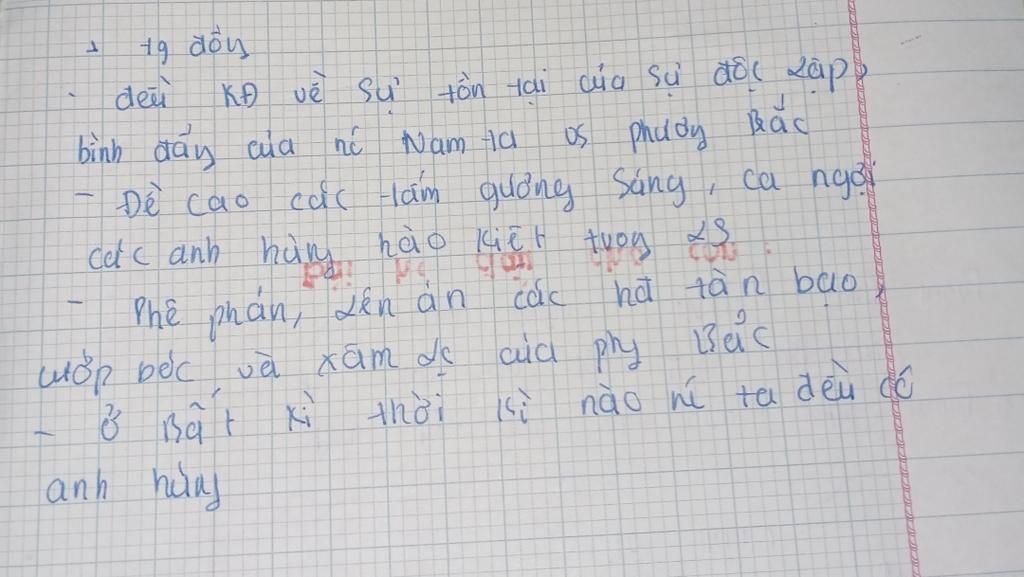 → tg đồy
- đều KĐ về sự tồn tại của sự độc lập,
bình đẳy của nc Nam ta os phươy Bắc
- Đề cao các tấm gương sáng, ca ngợi
các anh hùy hào kiệt troy LS
- Phê phán, lên án các hđ tàn bạo,
cướp bóc và xâm lc của phg Bắc
- Ở Bất kì thời kì nào nc ta đều có
anh hùy